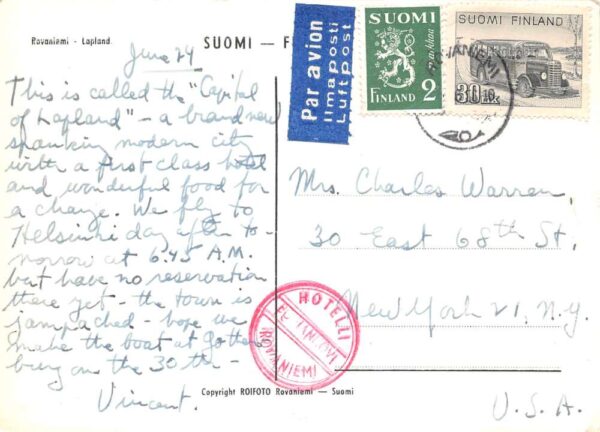 Rovaniemi - Lapland.
SUOMI — F
June 24
This is called the "Capital
of Lapland" - a brand new
spanking modern city
with a first class hotel
and wonderful food for
a change. We fly to
Helsinki day after to-
morrow at 6.45 A.M.
but have no reservation
there yet - the town is
jampacked - hope we
make the boat at Gothen
burg on the 30th -
Vincent.
Par avion
Ilmaposti
Luftpost
SUOMI
markkaa
FINLAND 2
SUOMI FINLAND
30
ROVANIEMI
Mrs. Charles Warren,
30 East 68th St.
New York 21, N.Y.
U.S.A.
HOTELLI
ROVANIEMI
Copyright ROIFOTO Rovaniemi — Suomi